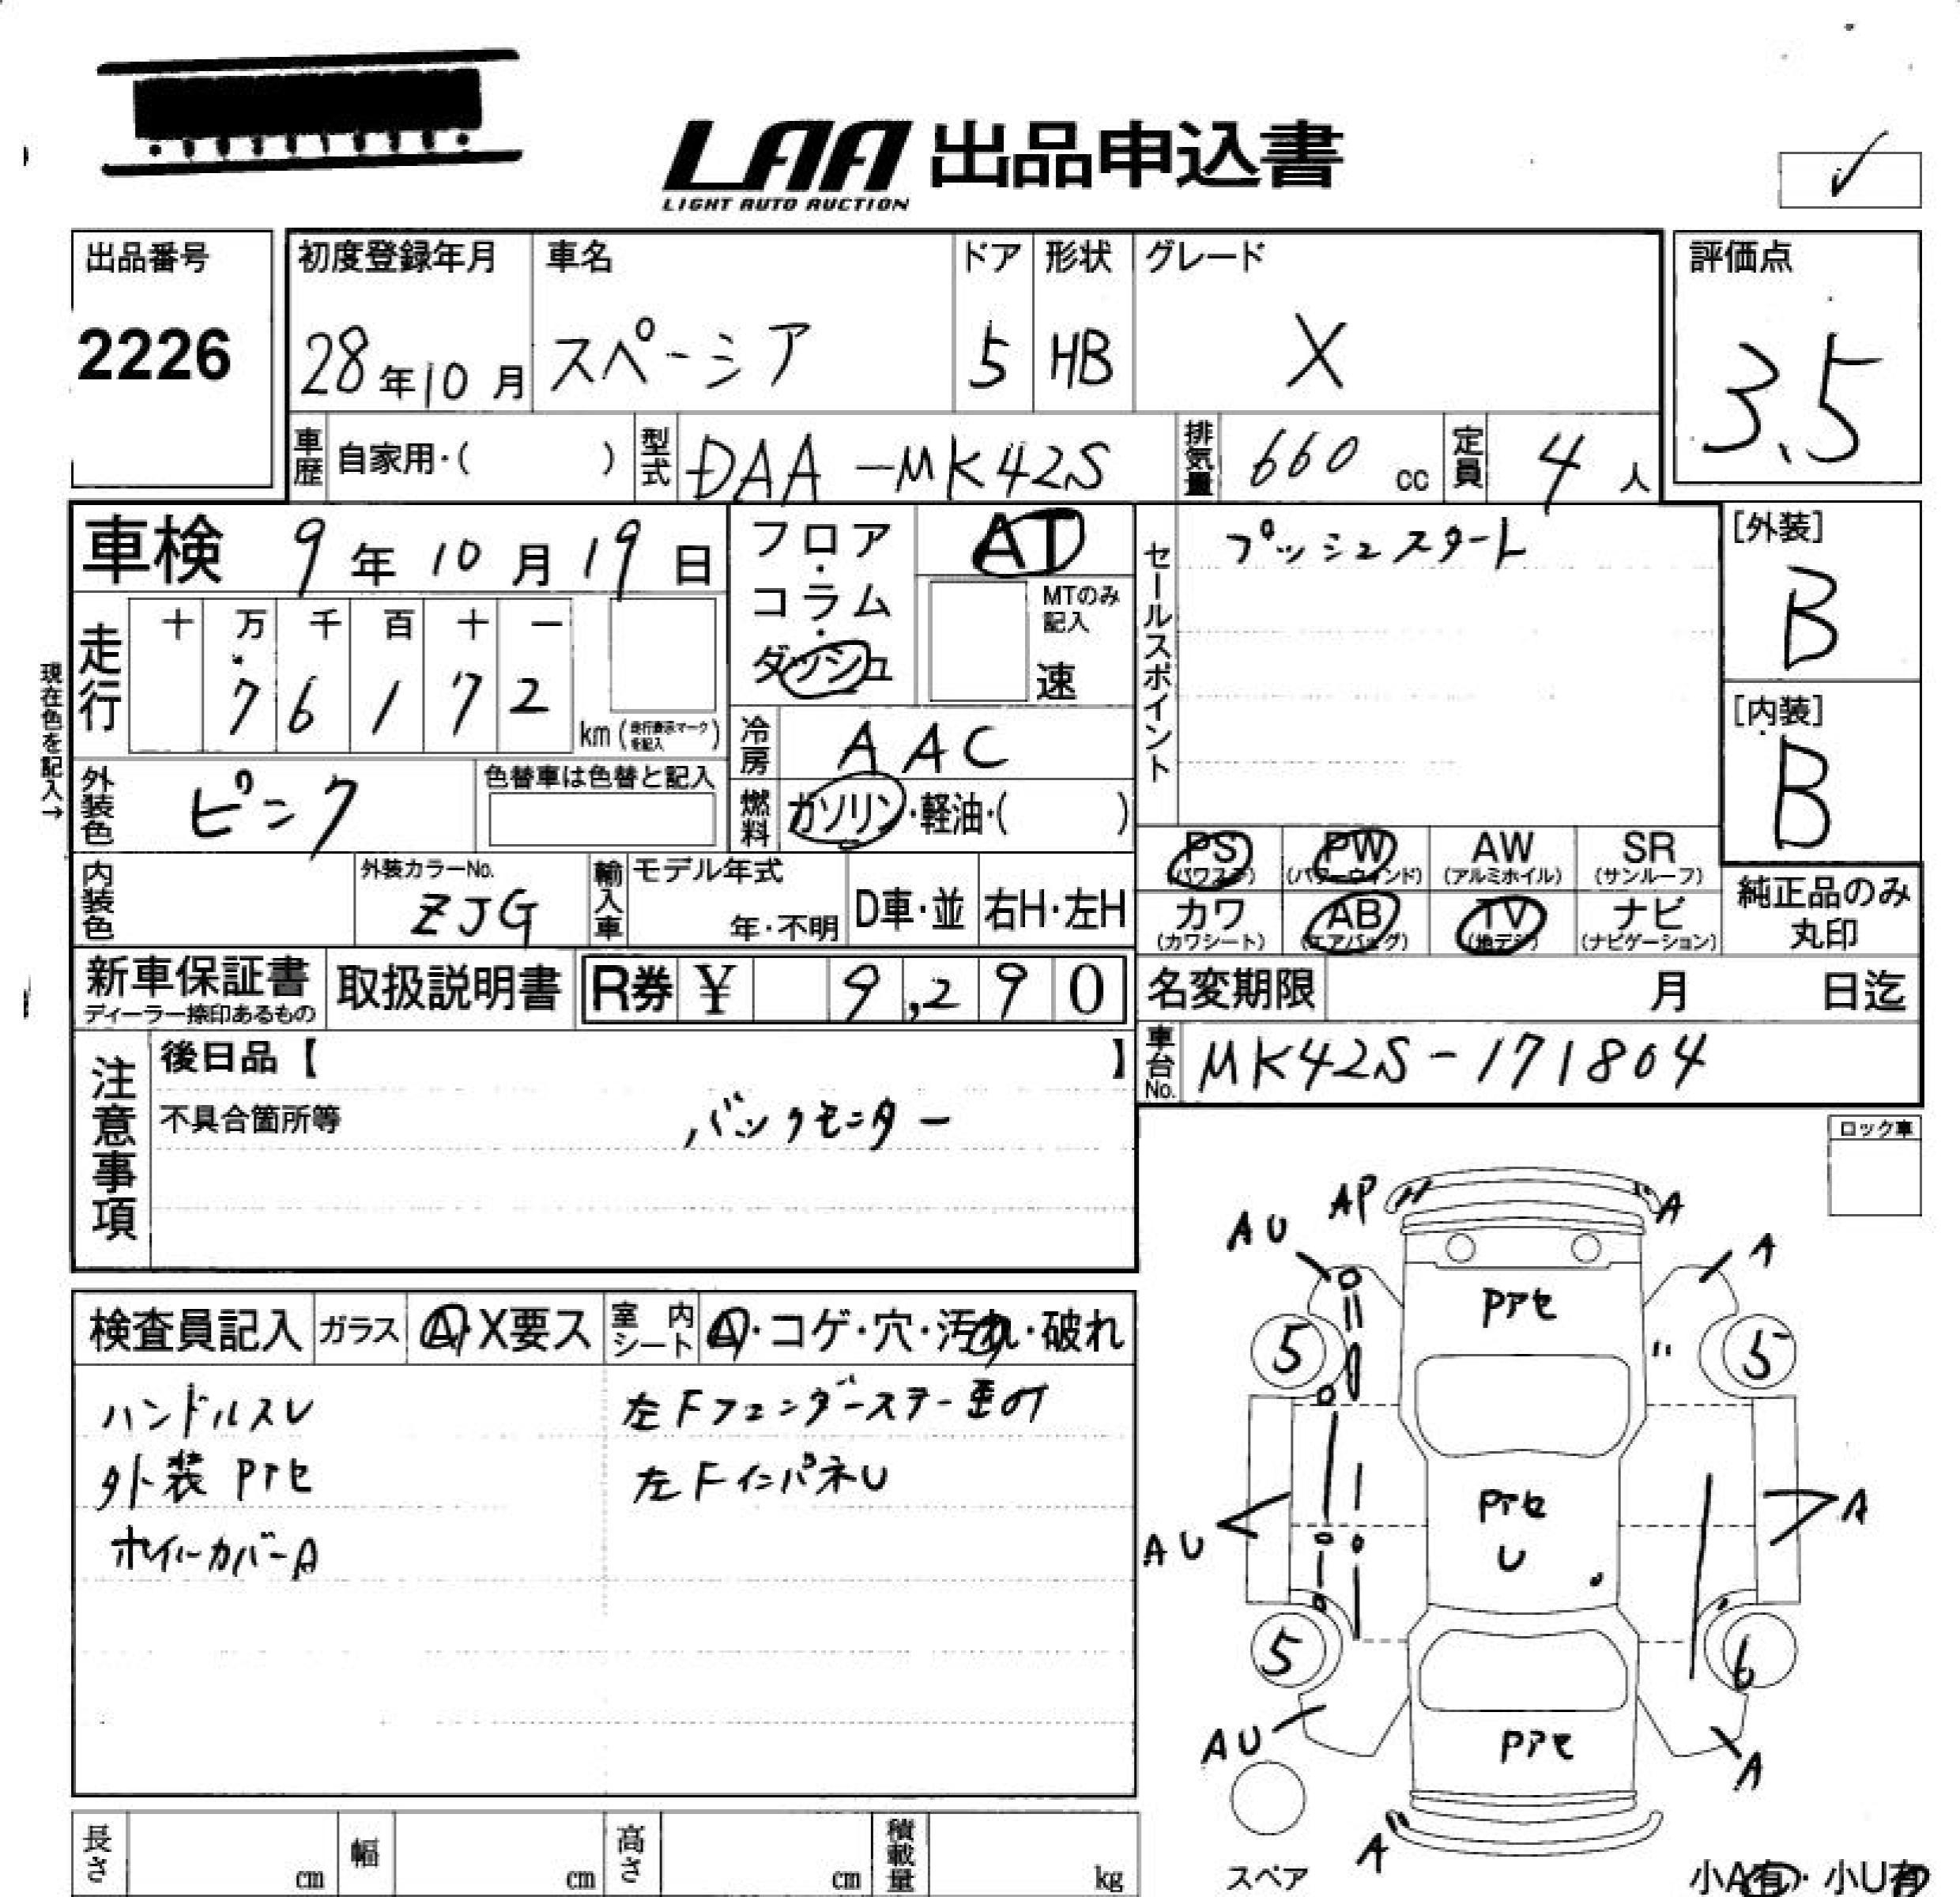 LAA 出品申込書
LIGHT AUTO AUCTION
✓
出品番号
2226
初度登録年月
28年10月
車名
スペーシア
ドア
5
形状
HB
グレード
X
評価点
3.5
車歴 自家用・( )
型式 DAA-MK42S
排気量 660 cc
定員 4 人
車検 9年10月19日
フロア・コラム・ダッシュ
AT
MTのみ記入
速
セールスポイント
プッシュスタート
[外装]
B
[内装]
B
現在色を記入→
走行
十 万 千 百 十 一
7 6 1 7 2
km (走行表示マークを記入)
冷房 AAC
燃料 ガソリン・軽油・( )
外装色 ピンク
色替車は色替と記入
内装色
外装カラーNo.
ZJG
輸入車
モデル年式
年・不明
D車・並
右H・左H
PS (パワステ)
PW (パワーウィンド)
AW (アルミホイル)
SR (サンルーフ)
カワ (カワシート)
AB (エアバッグ)
TV (地デジ)
ナビ (ナビゲーション)
純正品のみ丸印
新車保証書
ディーラー捺印あるもの
取扱説明書
R券 ¥ 9,290
名変期限 月 日迄
車台No. MK42S-171804
注意事項
後日品【 】
不具合箇所等
バックモニター
ロック車
検査員記入
ガラス A・X要ス
室内シート A・コゲ・穴・汚れ・破れ
ハンドルスレ
外装 Pアセ
ホイールカバーA
左Fフェンダーステー歪曲
左FインパネU
AP
A
AU
A
Pアセ
5
5
Pアセ
U
AU
A
5
6
AU
Pアセ
A
A
スペア
小A有・小U有
長さ cm
幅 cm
高さ cm
積載量 kg